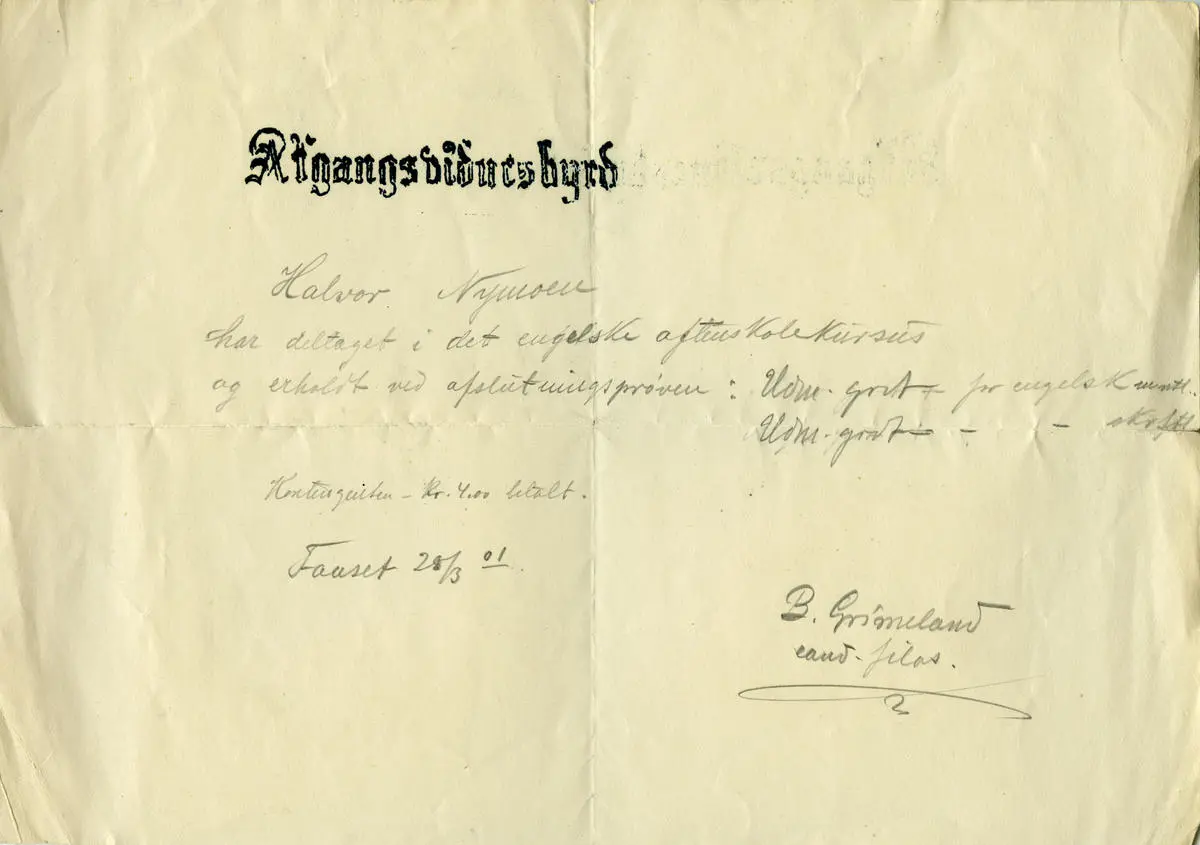 Afgangsvidnesbyrd
Halvor Nymoen
har deltaget i det engelske aftenskolekursus
og erholdt ved afslutningsprøven : Udm. godt + for engelsk mundtl.
Udm. godt – – – skriftl.
Kontingenten – kr. 4.00 betalt.
Fauset 28/3 01.
B. Grimeland
cand. filos.